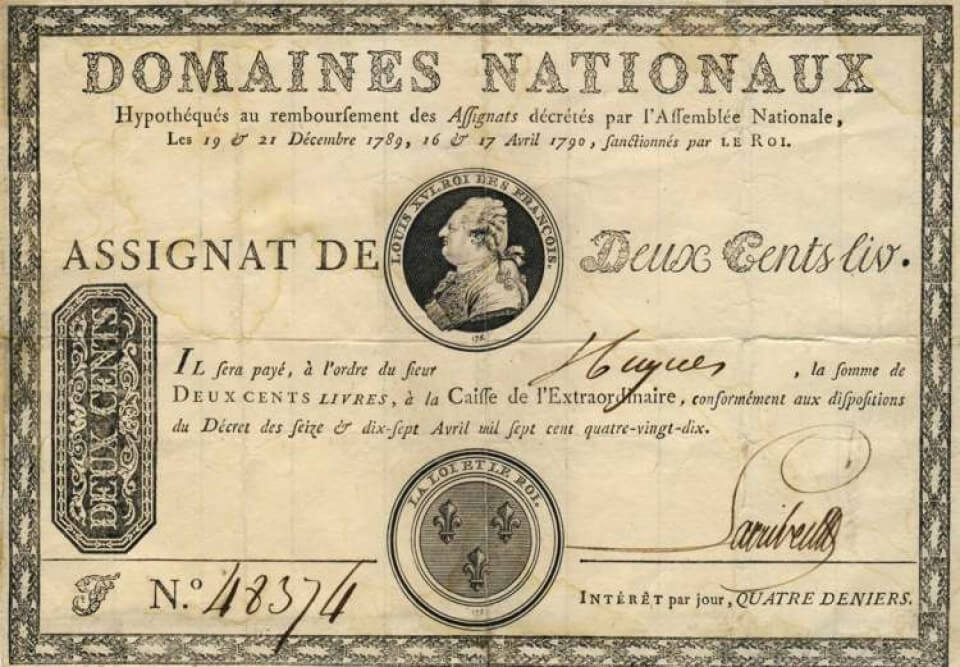 DOMAINES NATIONAUX
Hypothéqués au rembourſement des Aſſignats décrétés par l'Aſſemblée Nationale,
Les 19 & 21 Décembre 1789, 16 & 17 Avril 1790, ſanctionnés par LE ROI.
LOUIS XVI. ROI DES FRANÇOIS.
ASSIGNAT DE Deux Cents liv.
DEUX CENTS
IL ſera payé, à l'ordre du ſieur Hugues, la ſomme de
DEUX CENTS LIVRES, à la Caiſſe de l'Extraordinaire, conformément aux diſpoſitions
du Décret des ſeize & dix-ſept Avril mil ſept cent quatre-vingt-dix.
LA LOI ET LE ROI.
N.º 48374
INTÉRÊT par jour, QUATRE DENIERS.